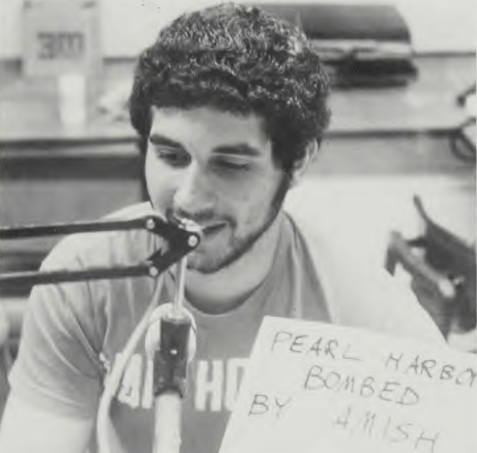 3M
PEARL HARBO
BOMBED
BY AMISH